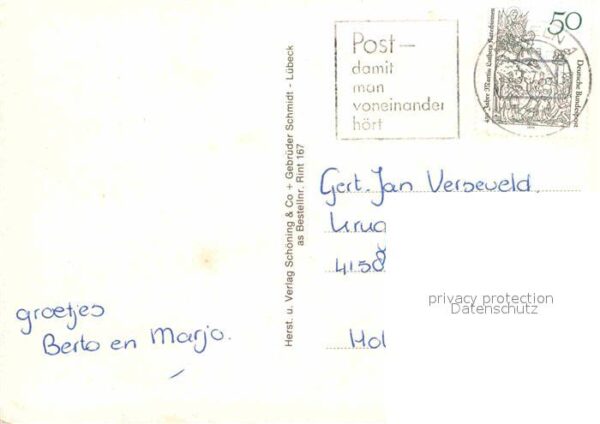 Post-
damit
man
voneinander
hört
50
450 Jahre Martin Luthers Katechismus
Deutsche Bundespost
Herst. u. Verlag Schöning & Co + Gebrüder Schmidt - Lübeck
as Bestellnr. Rint 167
Gert-Jan Verseveld.
4158
Hol
privacy protection
Datenschutz
groetjes
Berto en Marjo.